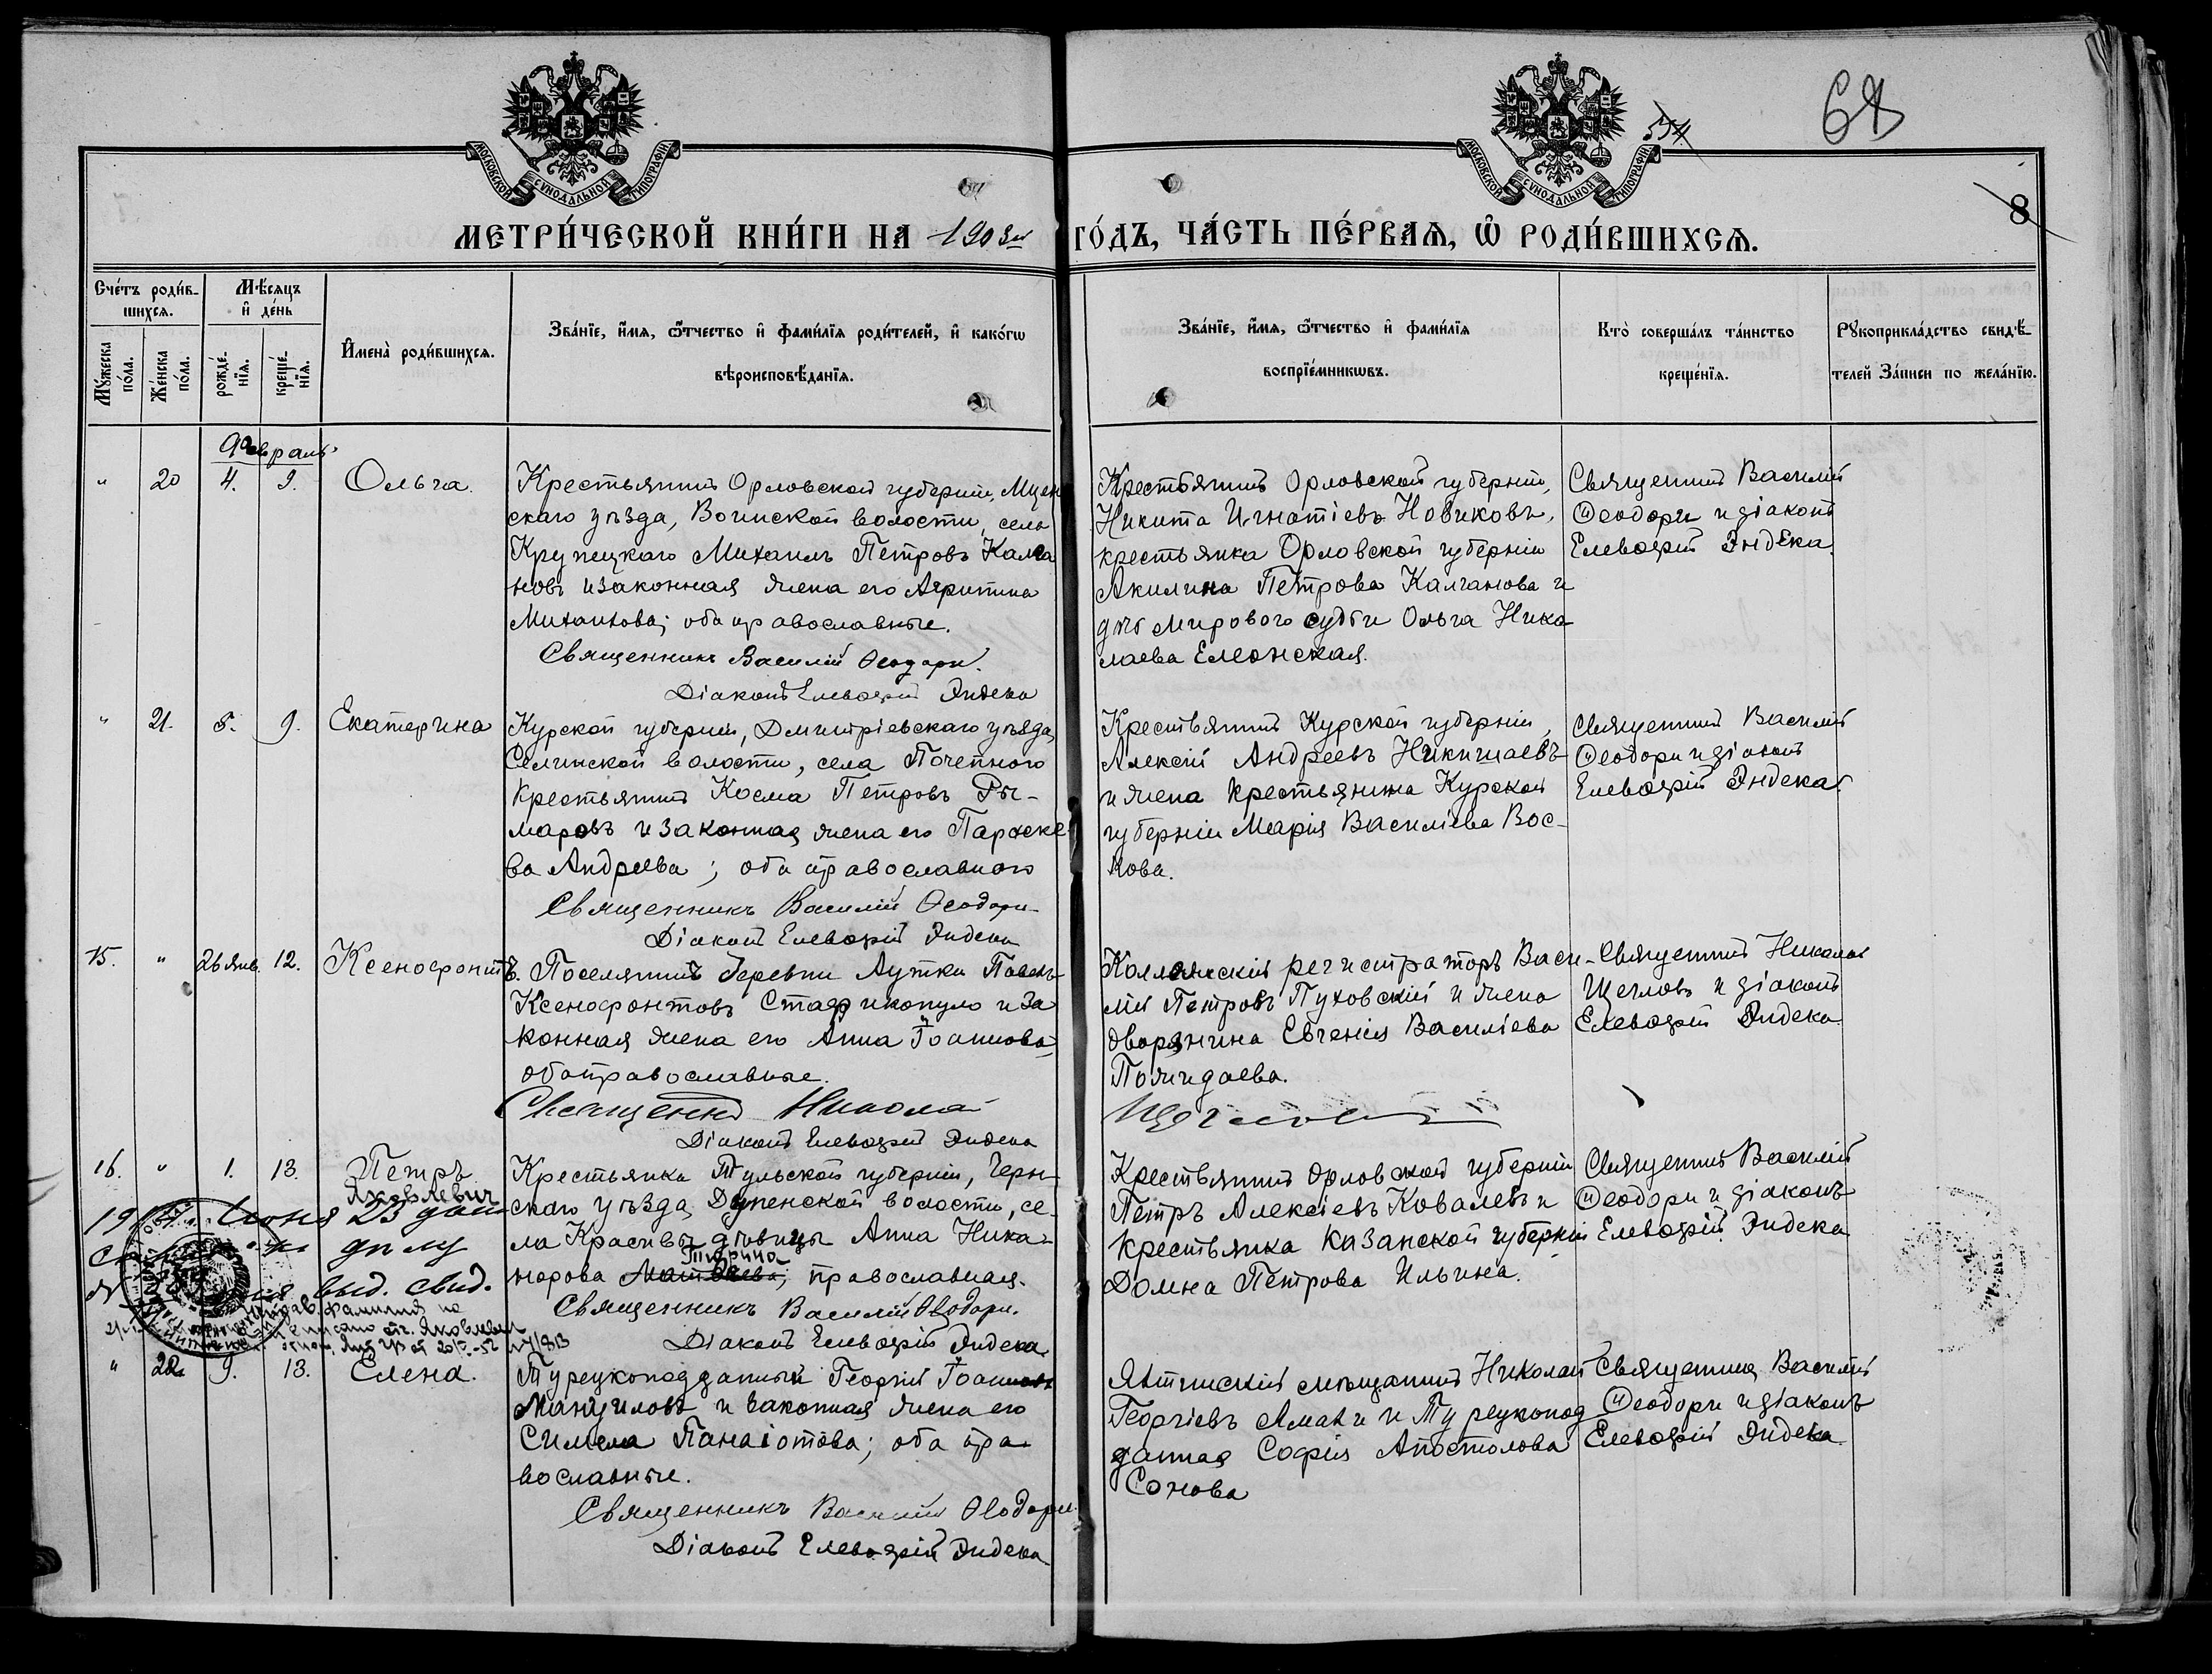 МОСКОВСКОЙ СѴНОДАЛЬНОЙ ТИПОГРАФІИ
МОСКОВСКОЙ СѴНОДАЛЬНОЙ ТИПОГРАФІИ
68
8
МЕТРИ́ЧЕСКОЙ КНИ́ГИ НА 1903й ГО́ДЪ, ЧА́СТЬ ПЕ́РВАѦ, Ѡ҆ РОДИ́ВШИХСѦ.
Сче́тъ роди́в-
шихсѧ.
Мꙋ́жеска по́ла.
Же́нска по́ла.
Мѣ́сѧцъ
и҆ де́нь
рожде́-нїѧ.
креще́-нїѧ.
И҆мена̀ роди́вшихсѧ.
Зва́нїе, и҆́мѧ, ѻ҆́тчество и҆ фами́лїѧ роди́телей, и҆ како́гѡ
вѣроисповѣ́данїѧ.
Зва́нїе, и҆́мѧ, ѻ҆́тчество и҆ фами́лїѧ
воспрїе́мникѡвъ.
Кто̀ соверша́лъ та́инство
креще́нїѧ.
Рꙋкоприкла́дство свидѣ́-
телей За́писи по жела́нїю.
Февраль
" 20 4. 9. Ольга.
Крестьянинъ Орловской губерніи, Мцен
скаго уѣзда, Воинской волости, села
Крупецкаго Михаилъ Петровъ Калга
новъ и законная жена его Агрипина
Михаилова; оба православные.
Священникъ Василій Ѳеодори.
Діаконъ Елевѳерій Эндека
Крестьянинъ Орловской губерніи,
Никита Игнатіевъ Новиковъ,
крестьянка Орловской губерніи
Акилина Петрова Калганова и
дчь мирового судьи Ольга Нико
лаева
Священникъ Василій
Ѳеодори и діаконъ
Елевѳерій Эндека.
" 21. 5. 9. Екатерина
Курской губерніи, Дмитріевскаго уѣзда,
Селинской волости, села Почепного
крестьянинъ Косма Петровъ Ры-
маровъ и законная жена его Параске-
ва Андреева; оба православного
Священникъ Василій Ѳеодори
Діаконъ Елевѳерій Эндека
Крестьянинъ Курской губерніи,
Алексій Андреевъ Никишаевъ
и жена крестьянина Курской
губерніи Марія Василіева Вос-
кова.
Священникъ Василій
Ѳеодори и діаконъ
Елевѳерій Эндека
15. " 26 янв. 12. Ксенофонтъ.
Поселянинъ деревни Аутки Павелъ
Ксенофонтовъ Стафикопуло и за
конная жена его Анна Іоаннова,
оба православные.
Священникъ Николай Щегловъ
Діаконъ Елевѳерій Эндека
Коллежскій регистраторъ Васи-
лій Петровъ Пуховскій и жена
дворянина Евгенія Василіева
Полидаева.
Священникъ Николай
Щегловъ и діаконъ
Елевѳерій Эндека.
16. " 1. 13. Петръ
Яковлевич
Крестьянка Тульской губерніи, Черн-
скаго уѣзда, волости, се-
ла Красивы дѣвицы Анна Ника-
норова Тюрина православная.
Священникъ Василій Ѳеодори.
Діаконъ Елевѳерій Эндека
Крестьянинъ Орловской губерніи
Петръ Алексіевъ Ковалевъ и
крестьянка Казанской губерніи
Домна Петрова Ильина.
Священникъ Василій
Ѳеодори и діаконъ
Елевѳерій Эндека
выд. свид.
фамилия
Яковлевич
" 22 9. 13. Елена.
Турецкоподданный Георгій Іоанновъ
Мануиловъ и законная жена его
Симела Панаіотова; оба пра
вославные.
Священникъ Василій Ѳеодори.
Діаконъ Елевѳерій Эндека
Ялтинскій мѣщанинъ Николай
Георгіевъ и Турецкопод
данная Софія Апостолова
Сонова
Священникъ Василій
Ѳеодори и діаконъ
Елевѳерій Эндека.